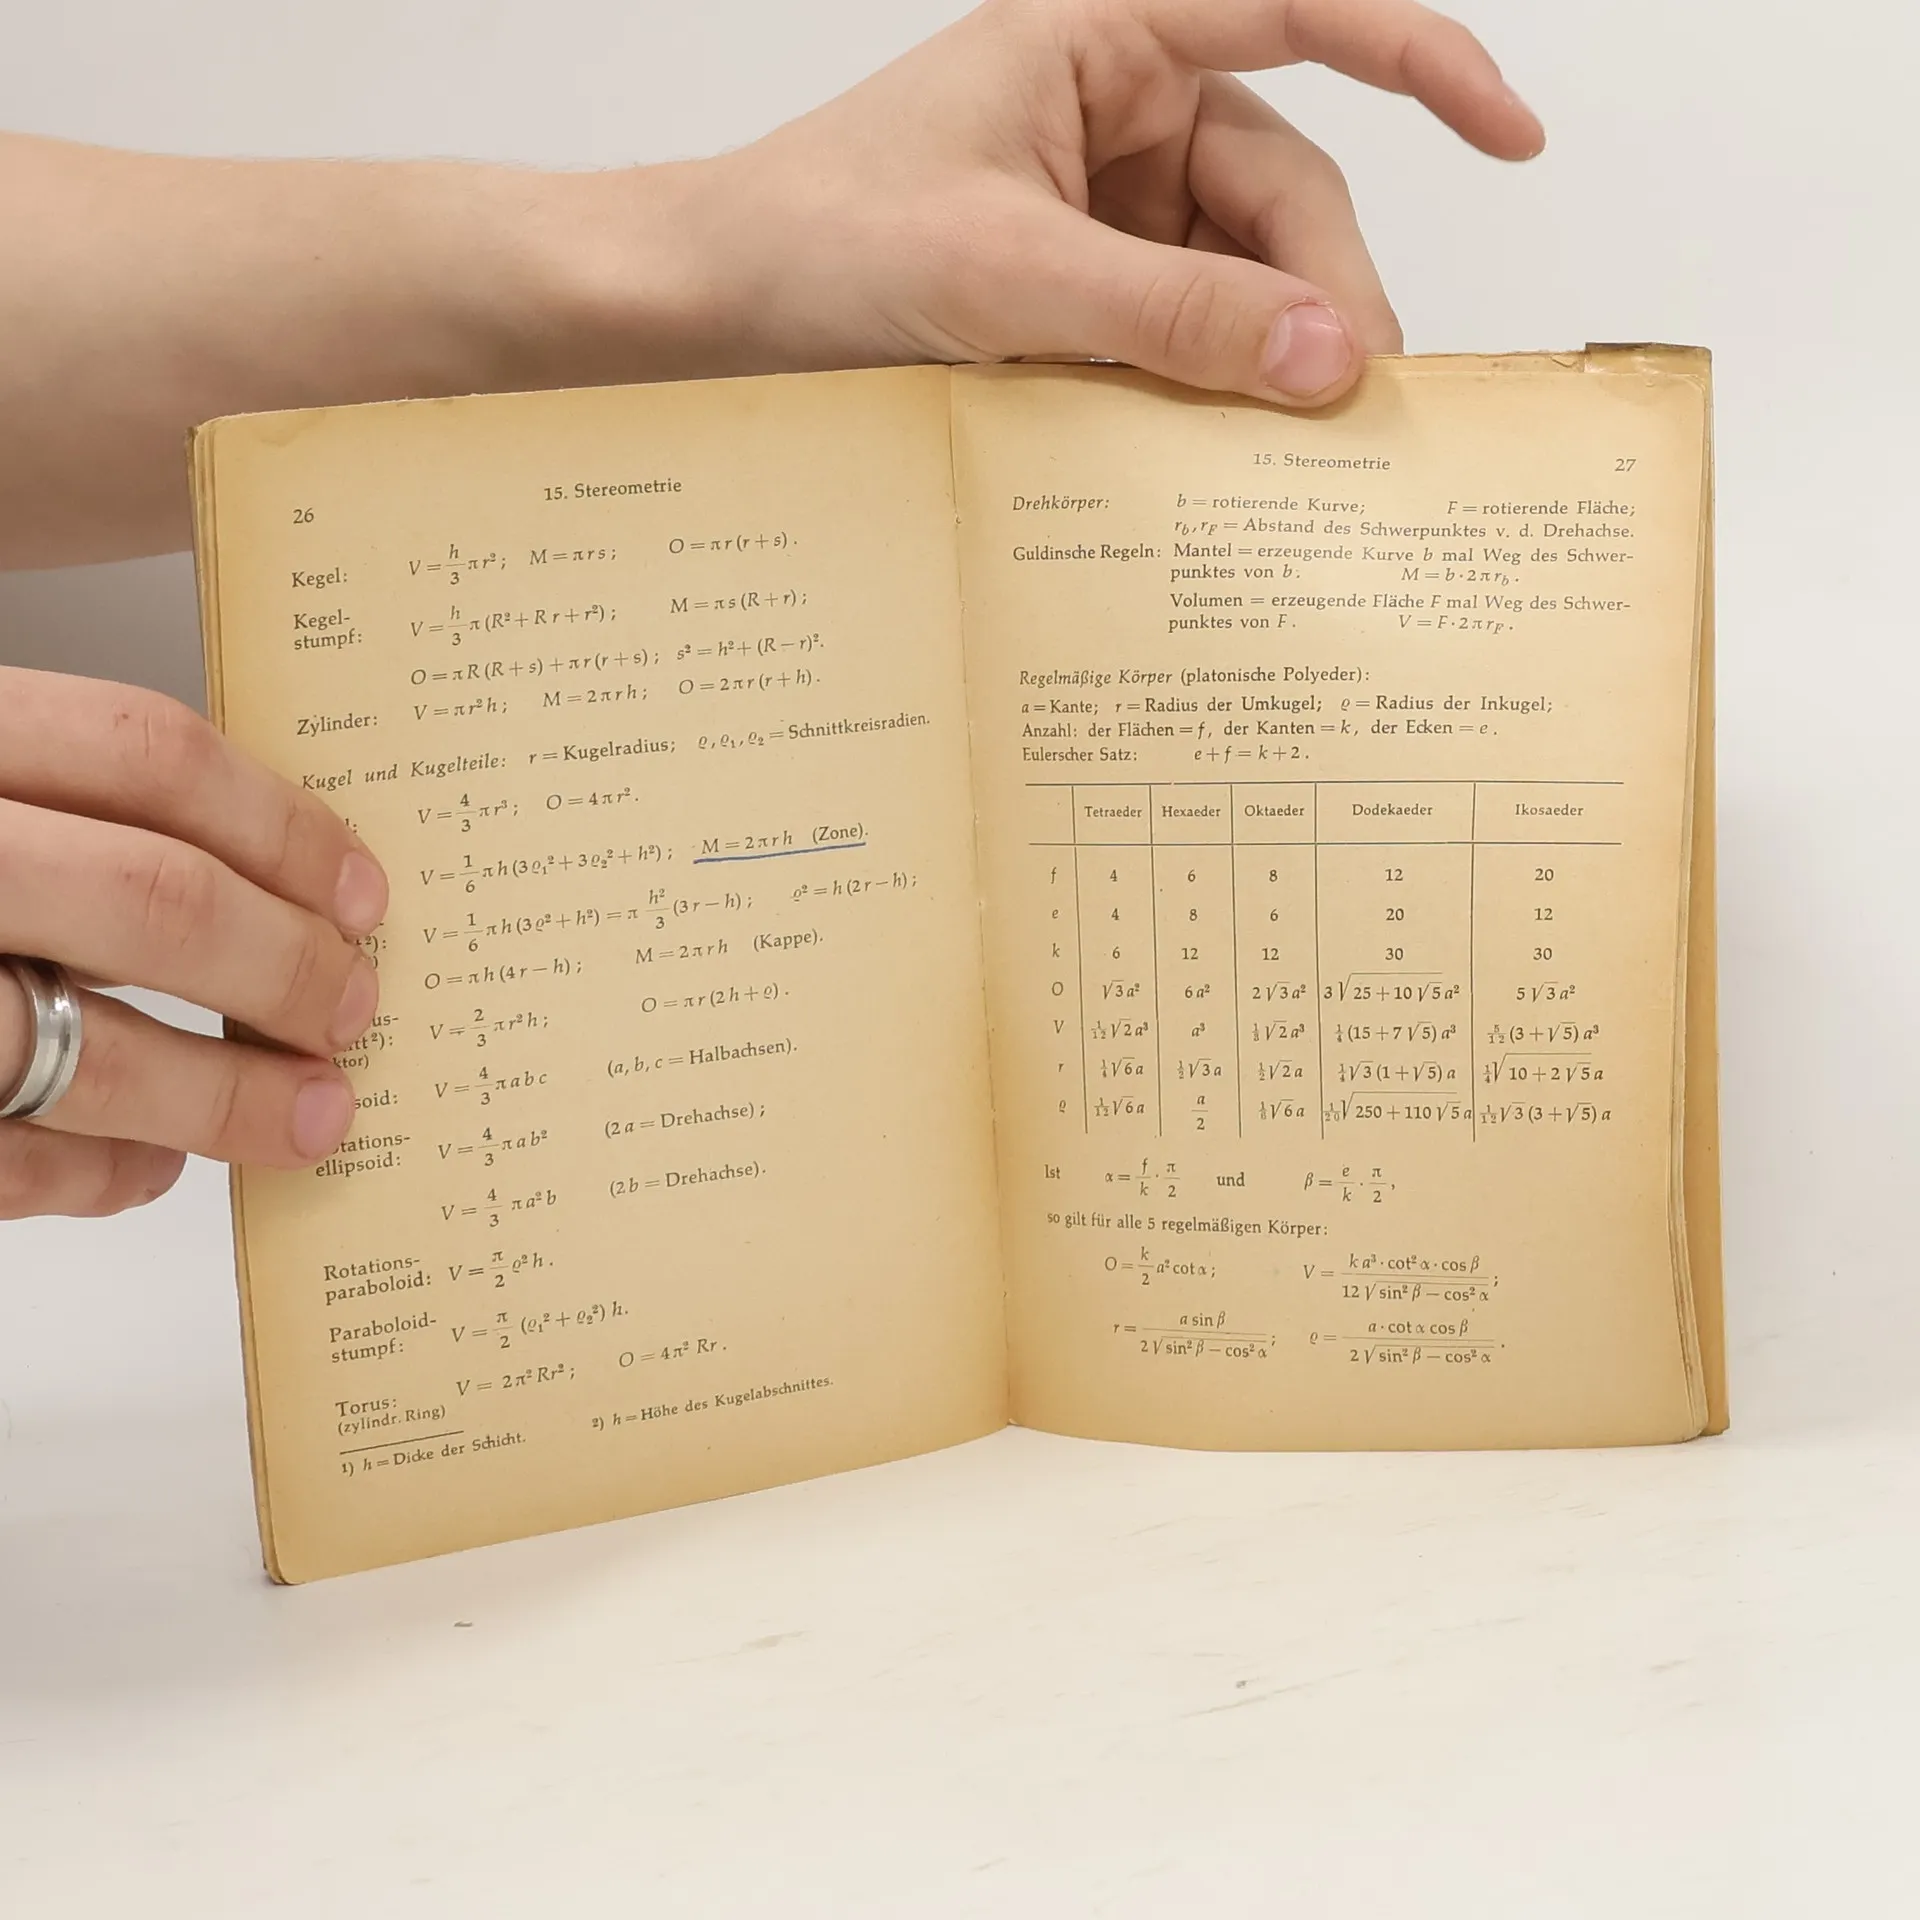 26
15. Stereometrie
Kegel: V = h/3 π r²; M = π r s; O = π r (r + s).
Kegel-
stumpf: V = h/3 π (R² + R r + r²); M = π s (R + r);
O = π R (R + s) + π r (r + s); s² = h² + (R − r)².
Zylinder: V = π r² h; M = 2 π r h; O = 2 π r (r + h).
Kugel und Kugelteile: r = Kugelradius; ϱ, ϱ₁, ϱ₂ = Schnittkreisradien.
V = 4/3 π r³; O = 4 π r².
V = 1/6 π h (3 ϱ₁² + 3 ϱ₂² + h²); M = 2 π r h (Zone).
V = 1/6 π h (3 ϱ² + h²) = π h²/3 (3 r − h); ϱ² = h (2 r − h);
O = π h (4 r − h); M = 2 π r h (Kappe).
V = 2/3 π r² h; O = π r (2 h + ϱ).
V = 4/3 π a b c (a, b, c = Halbachsen).
ellipsoid: V = 4/3 π a b² (2 a = Drehachse);
V = 4/3 π a² b (2 b = Drehachse).
Rotations-
paraboloid: V = π/2 ϱ² h.
Paraboloid-
stumpf: V = π/2 (ϱ₁² + ϱ₂²) h.
Torus: V = 2 π² R r²; O = 4 π² R r.
(zylindr. Ring)
1) h = Dicke der Schicht. 2) h = Höhe des Kugelabschnittes.
15. Stereometrie
27
Drehkörper: b = rotierende Kurve; F = rotierende Fläche;
r_b, r_F = Abstand des Schwerpunktes v. d. Drehachse.
Guldinsche Regeln: Mantel = erzeugende Kurve b mal Weg des Schwer-
punktes von b. M = b · 2 π r_b.
Volumen = erzeugende Fläche F mal Weg des Schwer-
punktes von F. V = F · 2 π r_F.
Regelmäßige Körper (platonische Polyeder):
a = Kante; r = Radius der Umkugel; ϱ = Radius der Inkugel;
Anzahl: der Flächen = f, der Kanten = k, der Ecken = e.
Eulerscher Satz: e + f = k + 2.
Tetraeder Hexaeder Oktaeder Dodekaeder Ikosaeder
f 4 6 8 12 20
e 4 8 6 20 12
k 6 12 12 30 30
O √3 a² 6 a² 2 √3 a² 3 √(25 + 10 √5) a² 5 √3 a²
V 1/12 √2 a³ a³ 1/3 √2 a³ 1/4 (15 + 7 √5) a³ 5/12 (3 + √5) a³
r 1/4 √6 a 1/2 √3 a 1/2 √2 a 1/4 √3 (1 + √5) a 1/4 √(10 + 2 √5) a
ϱ 1/12 √6 a a/2 1/6 √6 a 1/20 √(250 + 110 √5) a 1/12 √3 (3 + √5) a
Ist α = f/k · π/2 und β = e/k · π/2,
so gilt für alle 5 regelmäßigen Körper:
O = k/2 a² cot α; V = k a³ · cot² α · cos β / 12 √(sin² β − cos² α);
r = a sin β / 2 √(sin² β − cos² α); ϱ = a · cot α cos β / 2 √(sin² β − cos² α).